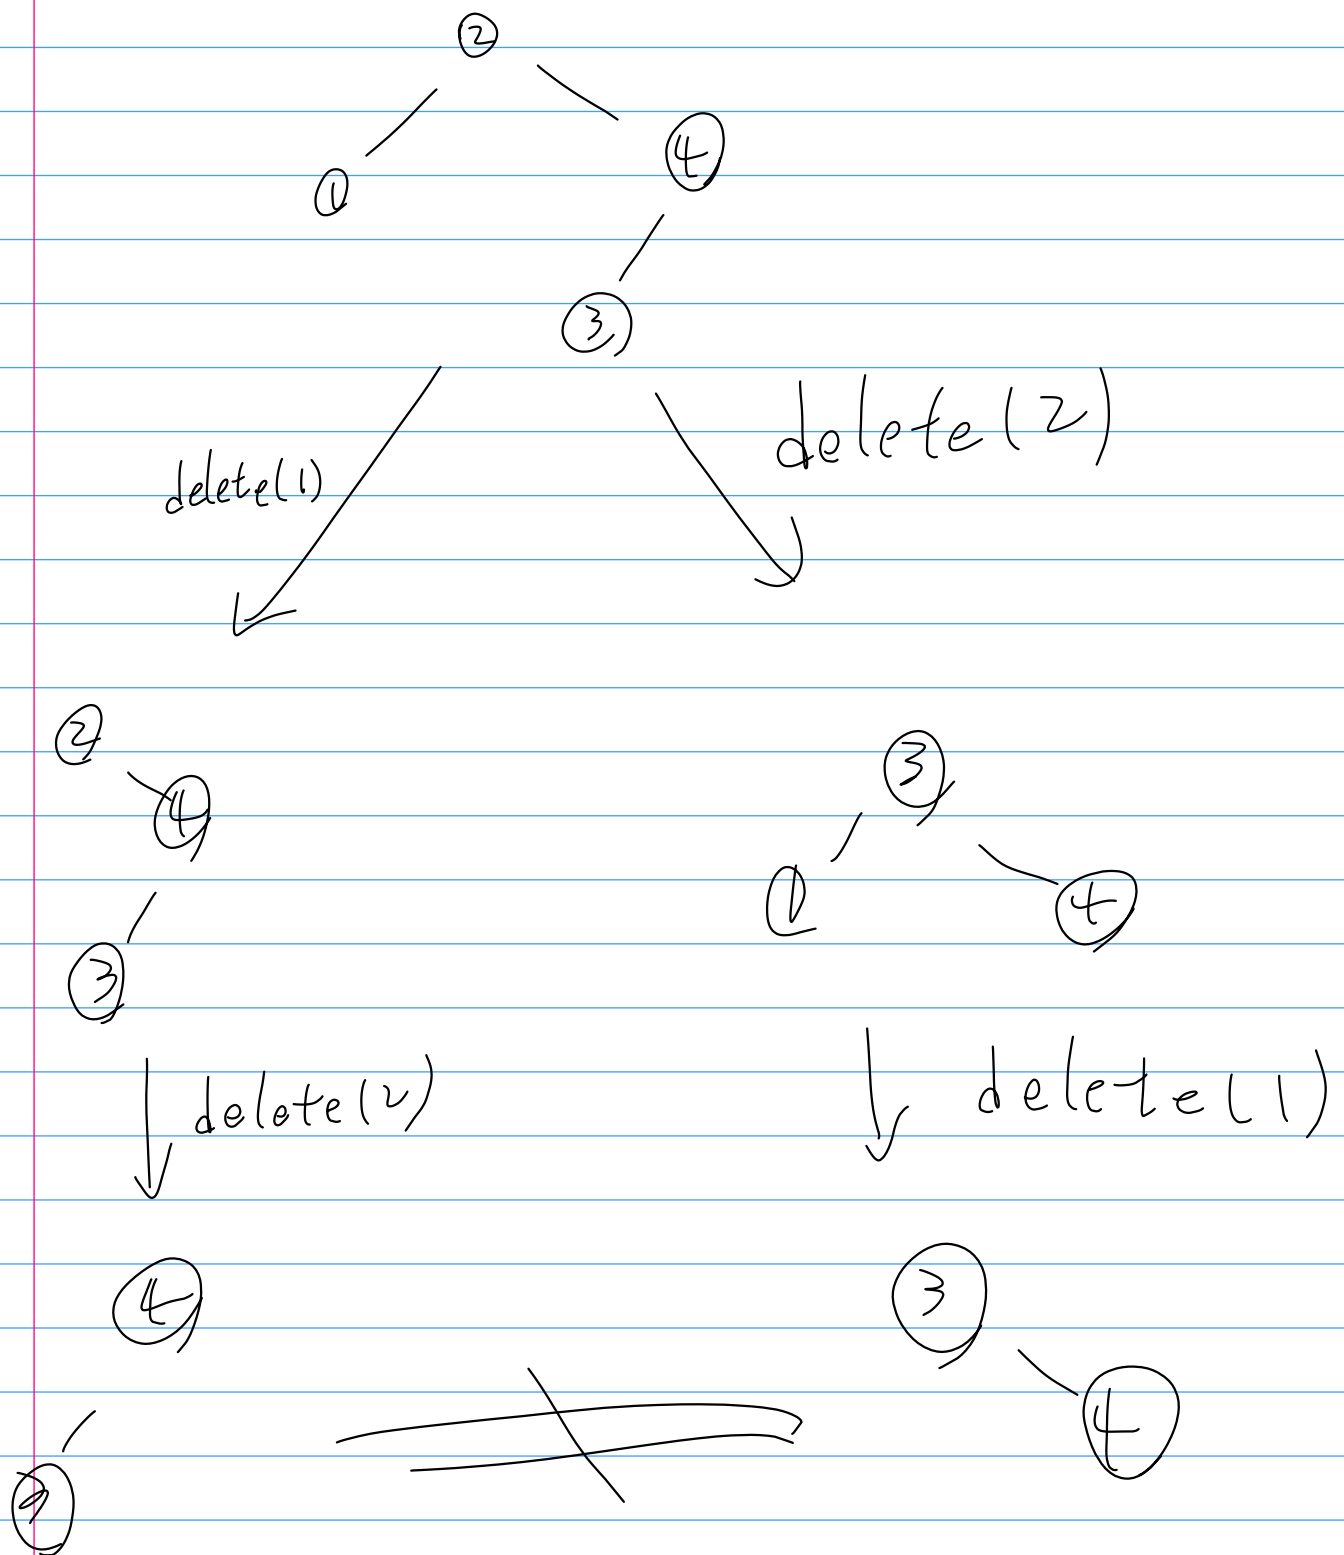 2
1
4
3
delete(1)
delete(2)
2
4
3
3
1
4
delete(2)
delete(1)
4
3
3
4